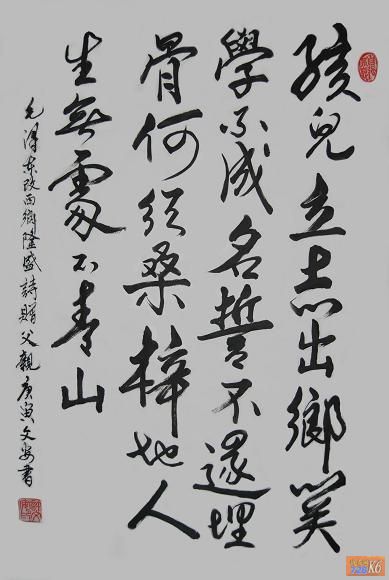 孩兒立志出鄉关
學不成名誓不還埋
骨何須桑梓地人
生無處不青山
毛澤東改西鄉隆盛詩贈父親庚寅文安書
K6